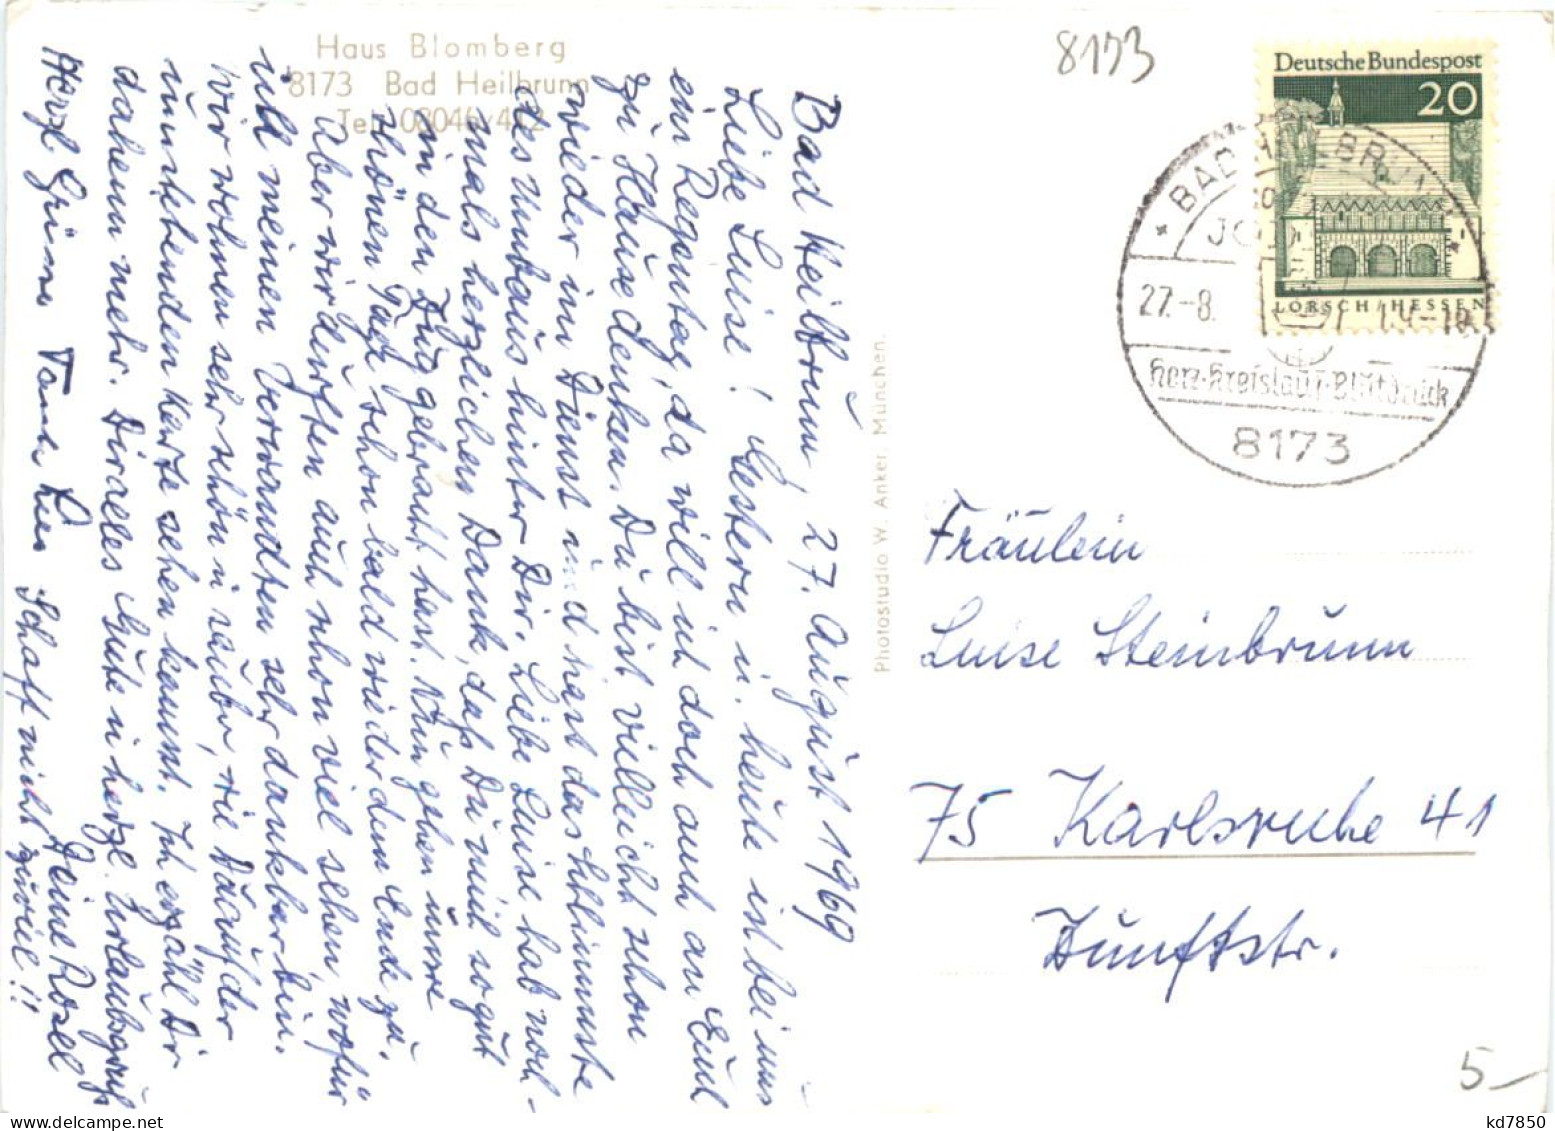 Haus Blomberg
8173 Bad Heilbrunn
Tel. 08046/412
8173
Deutsche Bundespost
20
LORSCH/HESSEN
BAD HEILBRUNN
27.-8.
Herz-Kreislauf-Blutdruck
8173
Photostudio W. Anker, München.
Bad Heilbrunn, 27. August 1969
Liebe Luise! Gestern u. heute ist bei uns
ein Regentag, da will ich doch auch an Euch
zu Hause denken. Du bist vielleicht schon
wieder im Dienst und hast das Schlimmste
des Umbaus hinter Dir. Liebe Luise hab noch-
mals herzlichen Dank, daß Du mich so gut
an den Zug gebracht hast. Nun gehen unsre
schönen Tage schon bald wieder dem Ende zu.
Aber wir durften auch schon viel sehen, wofür
ich meinen Verwandten sehr dankbar bin.
Wir wohnen sehr schön u. sauber, wie Du auf der
umstehenden Karte sehen kannst. Ich erzähl Dir
daheim mehr. Dir alles Gute u. herzl. Urlaubsgruß
Deine Rosel
Herzl Grüße Tante
Schafft nicht zuviel!!
Fräulein
Luise Steinbrunn
75 Karlsruhe 41
Zunftstr.
5-
kd7850